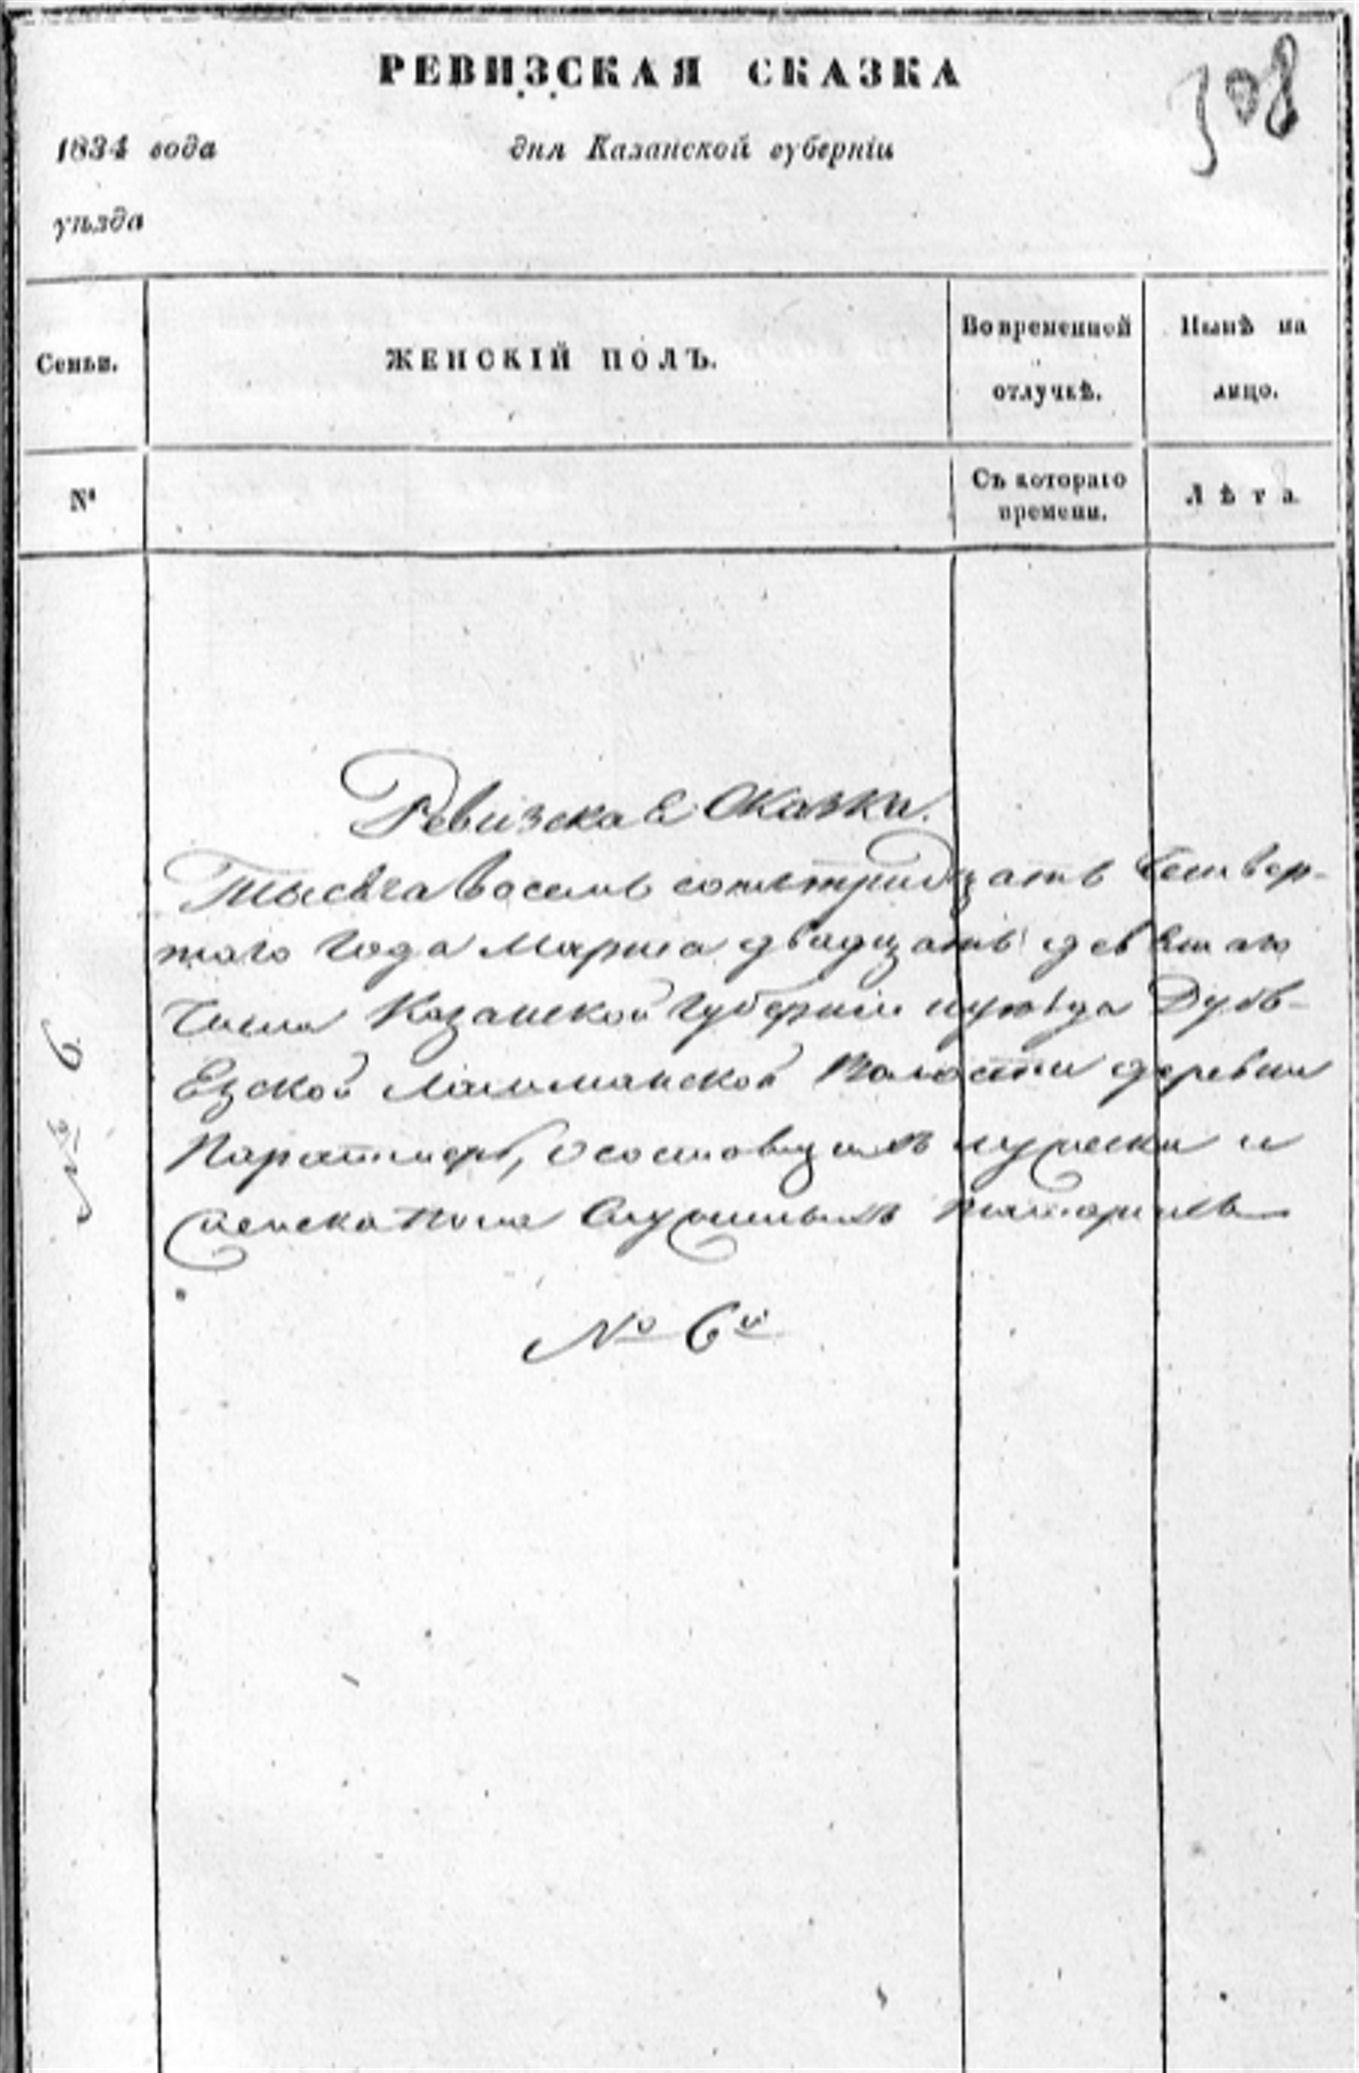 308
РЕВИЗСКАЯ СКАЗКА
1834 года дня Казанской губерніи
уѣзда
Семьи. ЖЕНСКІЙ ПОЛЪ. Во временной отлучкѣ. Нынѣ на лицо.
№ Съ котораго времени. Лѣта
Ревизская Сказка.
Тысяча восемь сотъ тридцать Четвер-
таго года Марта двадцать девятаго
Числа Казанской губерніи и уѣзда
Лашманской Волости деревни
о состоящихъ мужеска и
женска пола Служилыхъ татарахъ
№ 6й
№ 6.